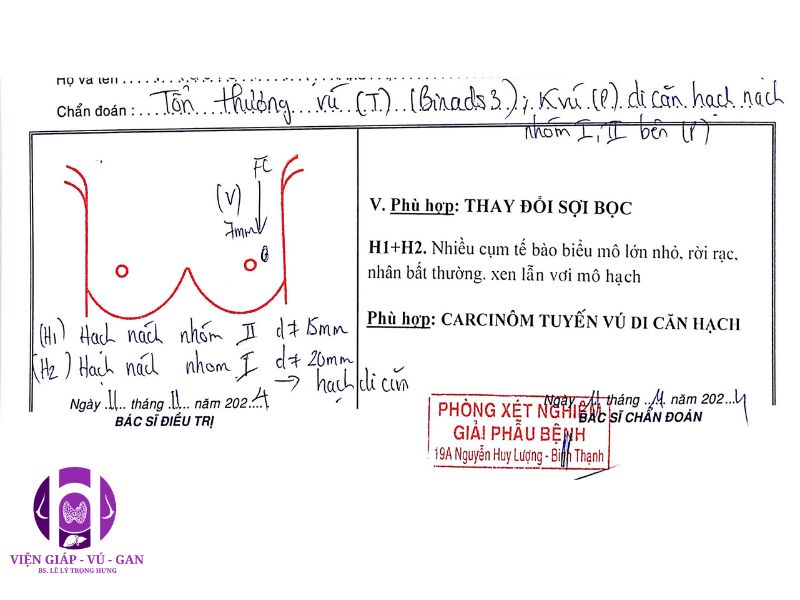 Họ và tên
Chẩn đoán : Tổn thương vú (T) (Birads 3) ; K vú (P) di căn hạch nách
nhóm I, II bên (P)
FC
(V)
7mm
V. Phù hợp: THAY ĐỔI SỢI BỌC
H1+H2. Nhiều cụm tế bào biểu mô lớn nhỏ, rời rạc,
nhân bất thường. xen lẫn vơi mô hạch
Phù hợp: CARCINÔM TUYẾN VÚ DI CĂN HẠCH
(H1) Hạch nách nhóm II d≠ 15mm
(H2) Hạch nách nhóm I d≠ 20mm
→ hạch di căn
Ngày 11 tháng 11 năm 2024
BÁC SĨ ĐIỀU TRỊ
Ngày 11 tháng 11 năm 2024
BÁC SĨ CHẨN ĐOÁN
PHÒNG XÉT NGHIỆM
GIẢI PHẪU BỆNH
19A Nguyễn Huy Lượng - Bình Thạnh
VIỆN GIÁP - VÚ - GAN
BS. LÊ LÝ TRỌNG HƯNG